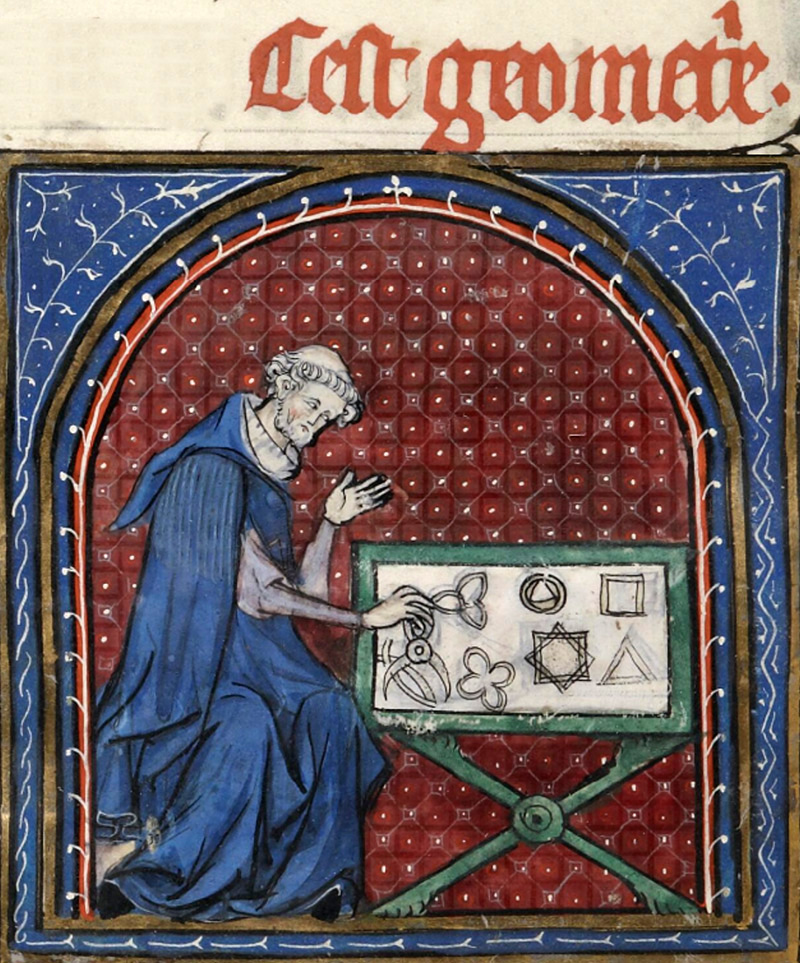 Cest geometrie.